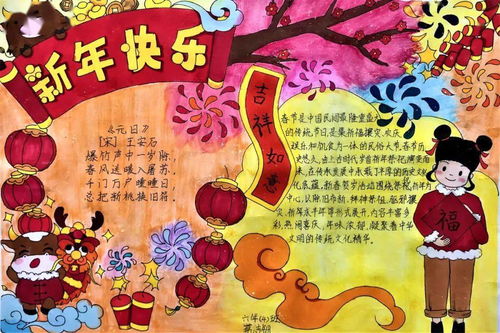 新年快乐
《元日》
[宋] 王安石
爆竹声中一岁除,
春风送暖入屠苏,
千门万户曈曈日,
总把新桃换旧符。
吉祥如意
春节是中国民间最隆重盛大
的传统节日,是集祈福攘灾、欢庆
娱乐和饮食为一体的民俗大节。春节历
史悠久,由上古时代岁首祈年祭祀演变而
来,在传承发展中承载了丰厚的历史文
化底蕴。新春贺岁活动围绕祭祝祈年为
中心,以除旧布新、拜神祭祖、祈福攘
灾、祈等形式展开,内容丰富多
彩,热闹喜庆,年味浓郁,凝聚着中华
文明的传统文化精华。
福
六年(4)班